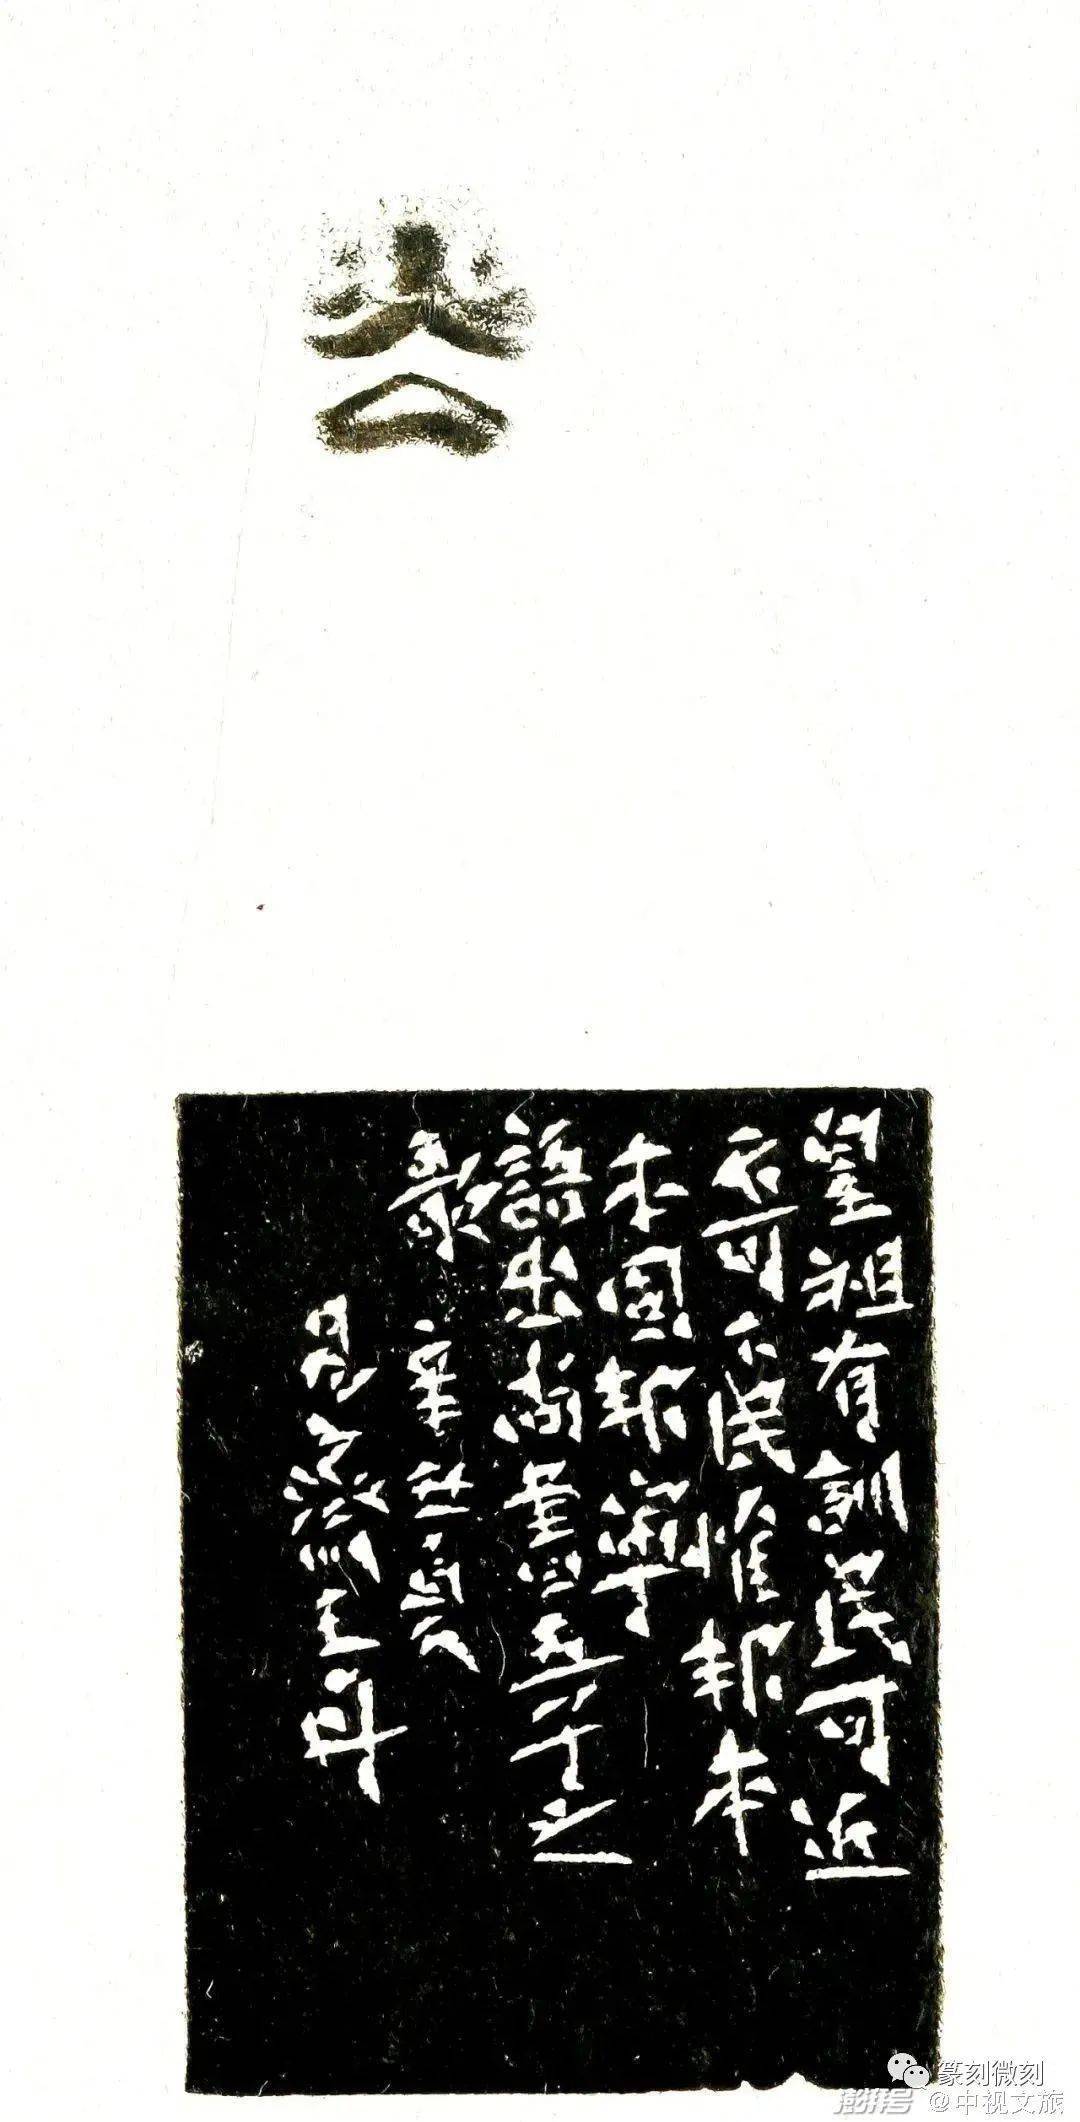 皇祖有訓民可近
不可下民惟邦本
本固邦寧
語出尚書五子之
歌 辛丑夏
王丹
篆刻微刻
澎湃号 @中视文旅